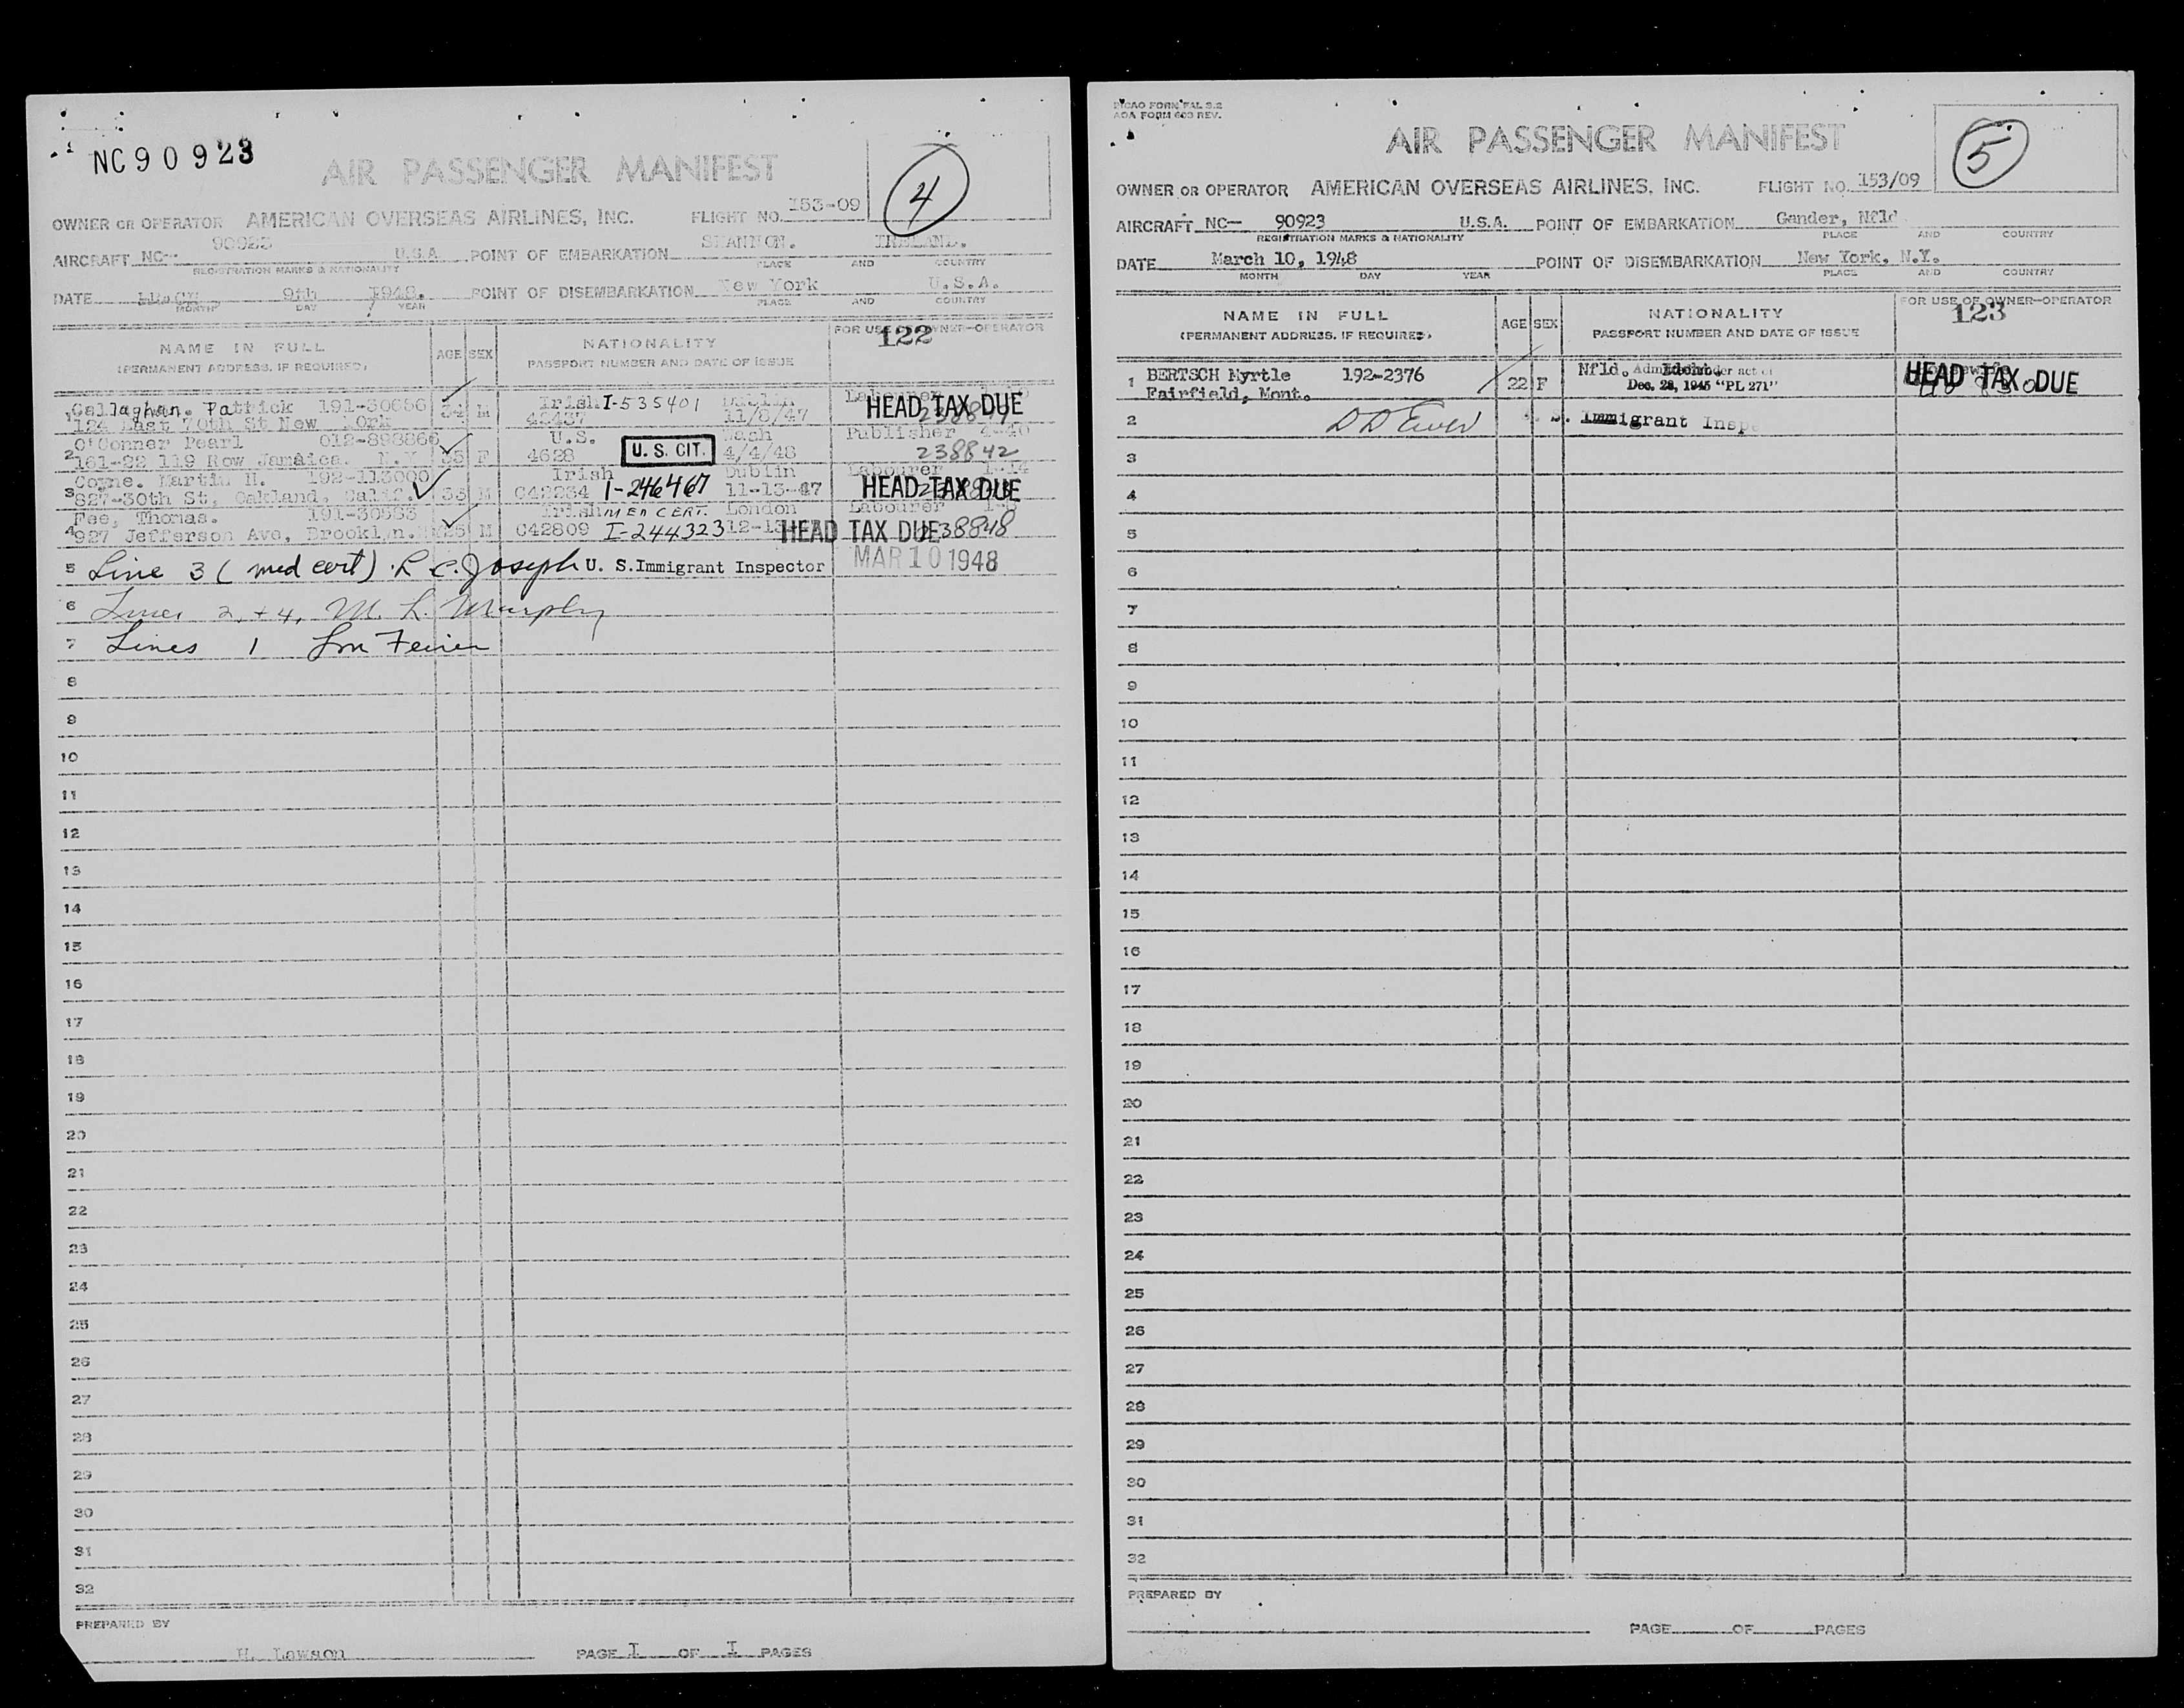 NC90923
AIR PASSENGER MANIFEST
4
OWNER OR OPERATOR AMERICAN OVERSEAS AIRLINES, INC. FLIGHT NO. 153-09
AIRCRAFT NC- 90923 U.S.A. POINT OF EMBARKATION SHANNON. IRELAND.
REGISTRATION MARKS & NATIONALITY PLACE AND COUNTRY
DATE March 9th 1948. POINT OF DISEMBARKATION New York U.S.A.
MONTH DAY YEAR PLACE AND COUNTRY
NAME IN FULL AGE SEX NATIONALITY FOR USE OF OWNER-OPERATOR
(PERMANENT ADDRESS, IF REQUIRED) PASSPORT NUMBER AND DATE OF ISSUE 122
1 Callaghan. Patrick 191-30656 34 M Irish I-535401 Dublin Labourer HEAD TAX DUE
124 East 70th St New York 42437 11/8/47
2 O'Conner Pearl 012-898866 35 F U.S. U. S. CIT. Wash Publisher 4-40
161-22 119 Row Jamaica. N.Y 4628 4/4/48 238842
3 Coyne. Martin H. 192-113000 33 M Irish Dublin Labourer 1-14
827-30th St, Oakland, Calif. C42234 I-246467 11-13-47 HEAD TAX DUE
4 Fee, Thomas. 191-30983 25 M Irish MED CERT. London Labourer 1-8
927 Jefferson Ave, Brooklyn. C42809 I-244323 HEAD TAX DUE 238848
5 Line 3 (med cert) R C. Joseph U. S. Immigrant Inspector MAR 10 1948
6 Lines 2, + 4, M. L. Murphy
7 Lines 1
8
9
10
11
12
13
14
15
16
17
18
19
20
21
22
23
24
25
26
27
28
29
30
31
32
PREPARED BY
H. Lawson PAGE I OF I PAGES
ICAO FORM FAL 3.2
AOA FORM 600 REV.
AIR PASSENGER MANIFEST
5
OWNER OR OPERATOR AMERICAN OVERSEAS AIRLINES, INC. FLIGHT NO. 153/09
AIRCRAFT NC- 90923 U.S.A. POINT OF EMBARKATION Gander, Nfld
REGISTRATION MARKS & NATIONALITY PLACE AND COUNTRY
DATE March 10, 1948 POINT OF DISEMBARKATION New York, N.Y.
MONTH DAY YEAR PLACE AND COUNTRY
NAME IN FULL AGE SEX NATIONALITY FOR USE OF OWNER-OPERATOR
(PERMANENT ADDRESS, IF REQUIRED) PASSPORT NUMBER AND DATE OF ISSUE 123
1 BERTSCH Myrtle 192-2376 22 F Nfld. under act of HEAD TAX DUE
Fairfield, Mont. Dec. 28, 1945 "PL 271"
2 Immigrant
3
4
5
6
7
8
9
10
11
12
13
14
15
16
17
18
19
20
21
22
23
24
25
26
27
28
29
30
31
32
PREPARED BY
PAGE OF PAGES